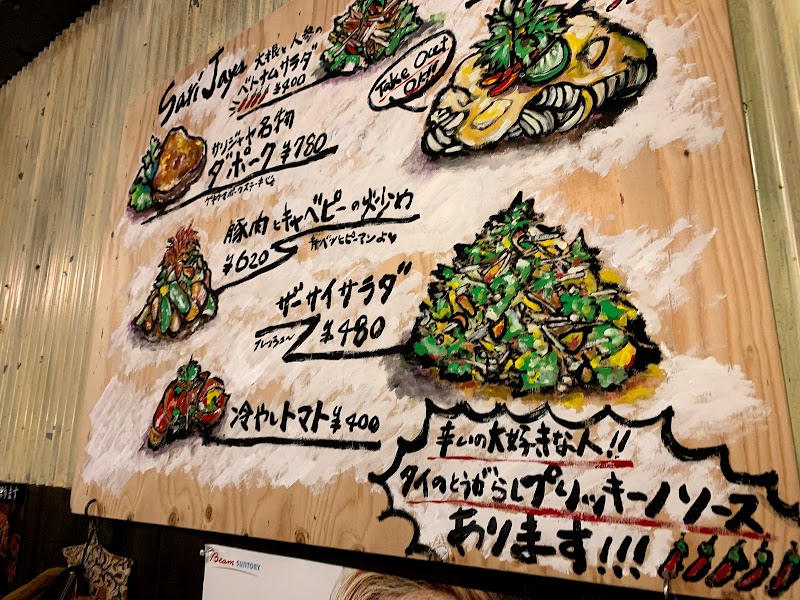 Sari Jaya
大根と人参の
ベトナムサラダ
¥400
Take Out
OK!!
サリジャヤ名物
ダポーク ¥780
豚肉とキャベピーの炒め
¥620
キャベツとピーマンよ♥
ザーサイサラダ
¥480
冷やしトマト ¥400
辛いの大好きな人!!
タイのとうがらしプリッキーノソース
あります!!!
Beam SUNTORY